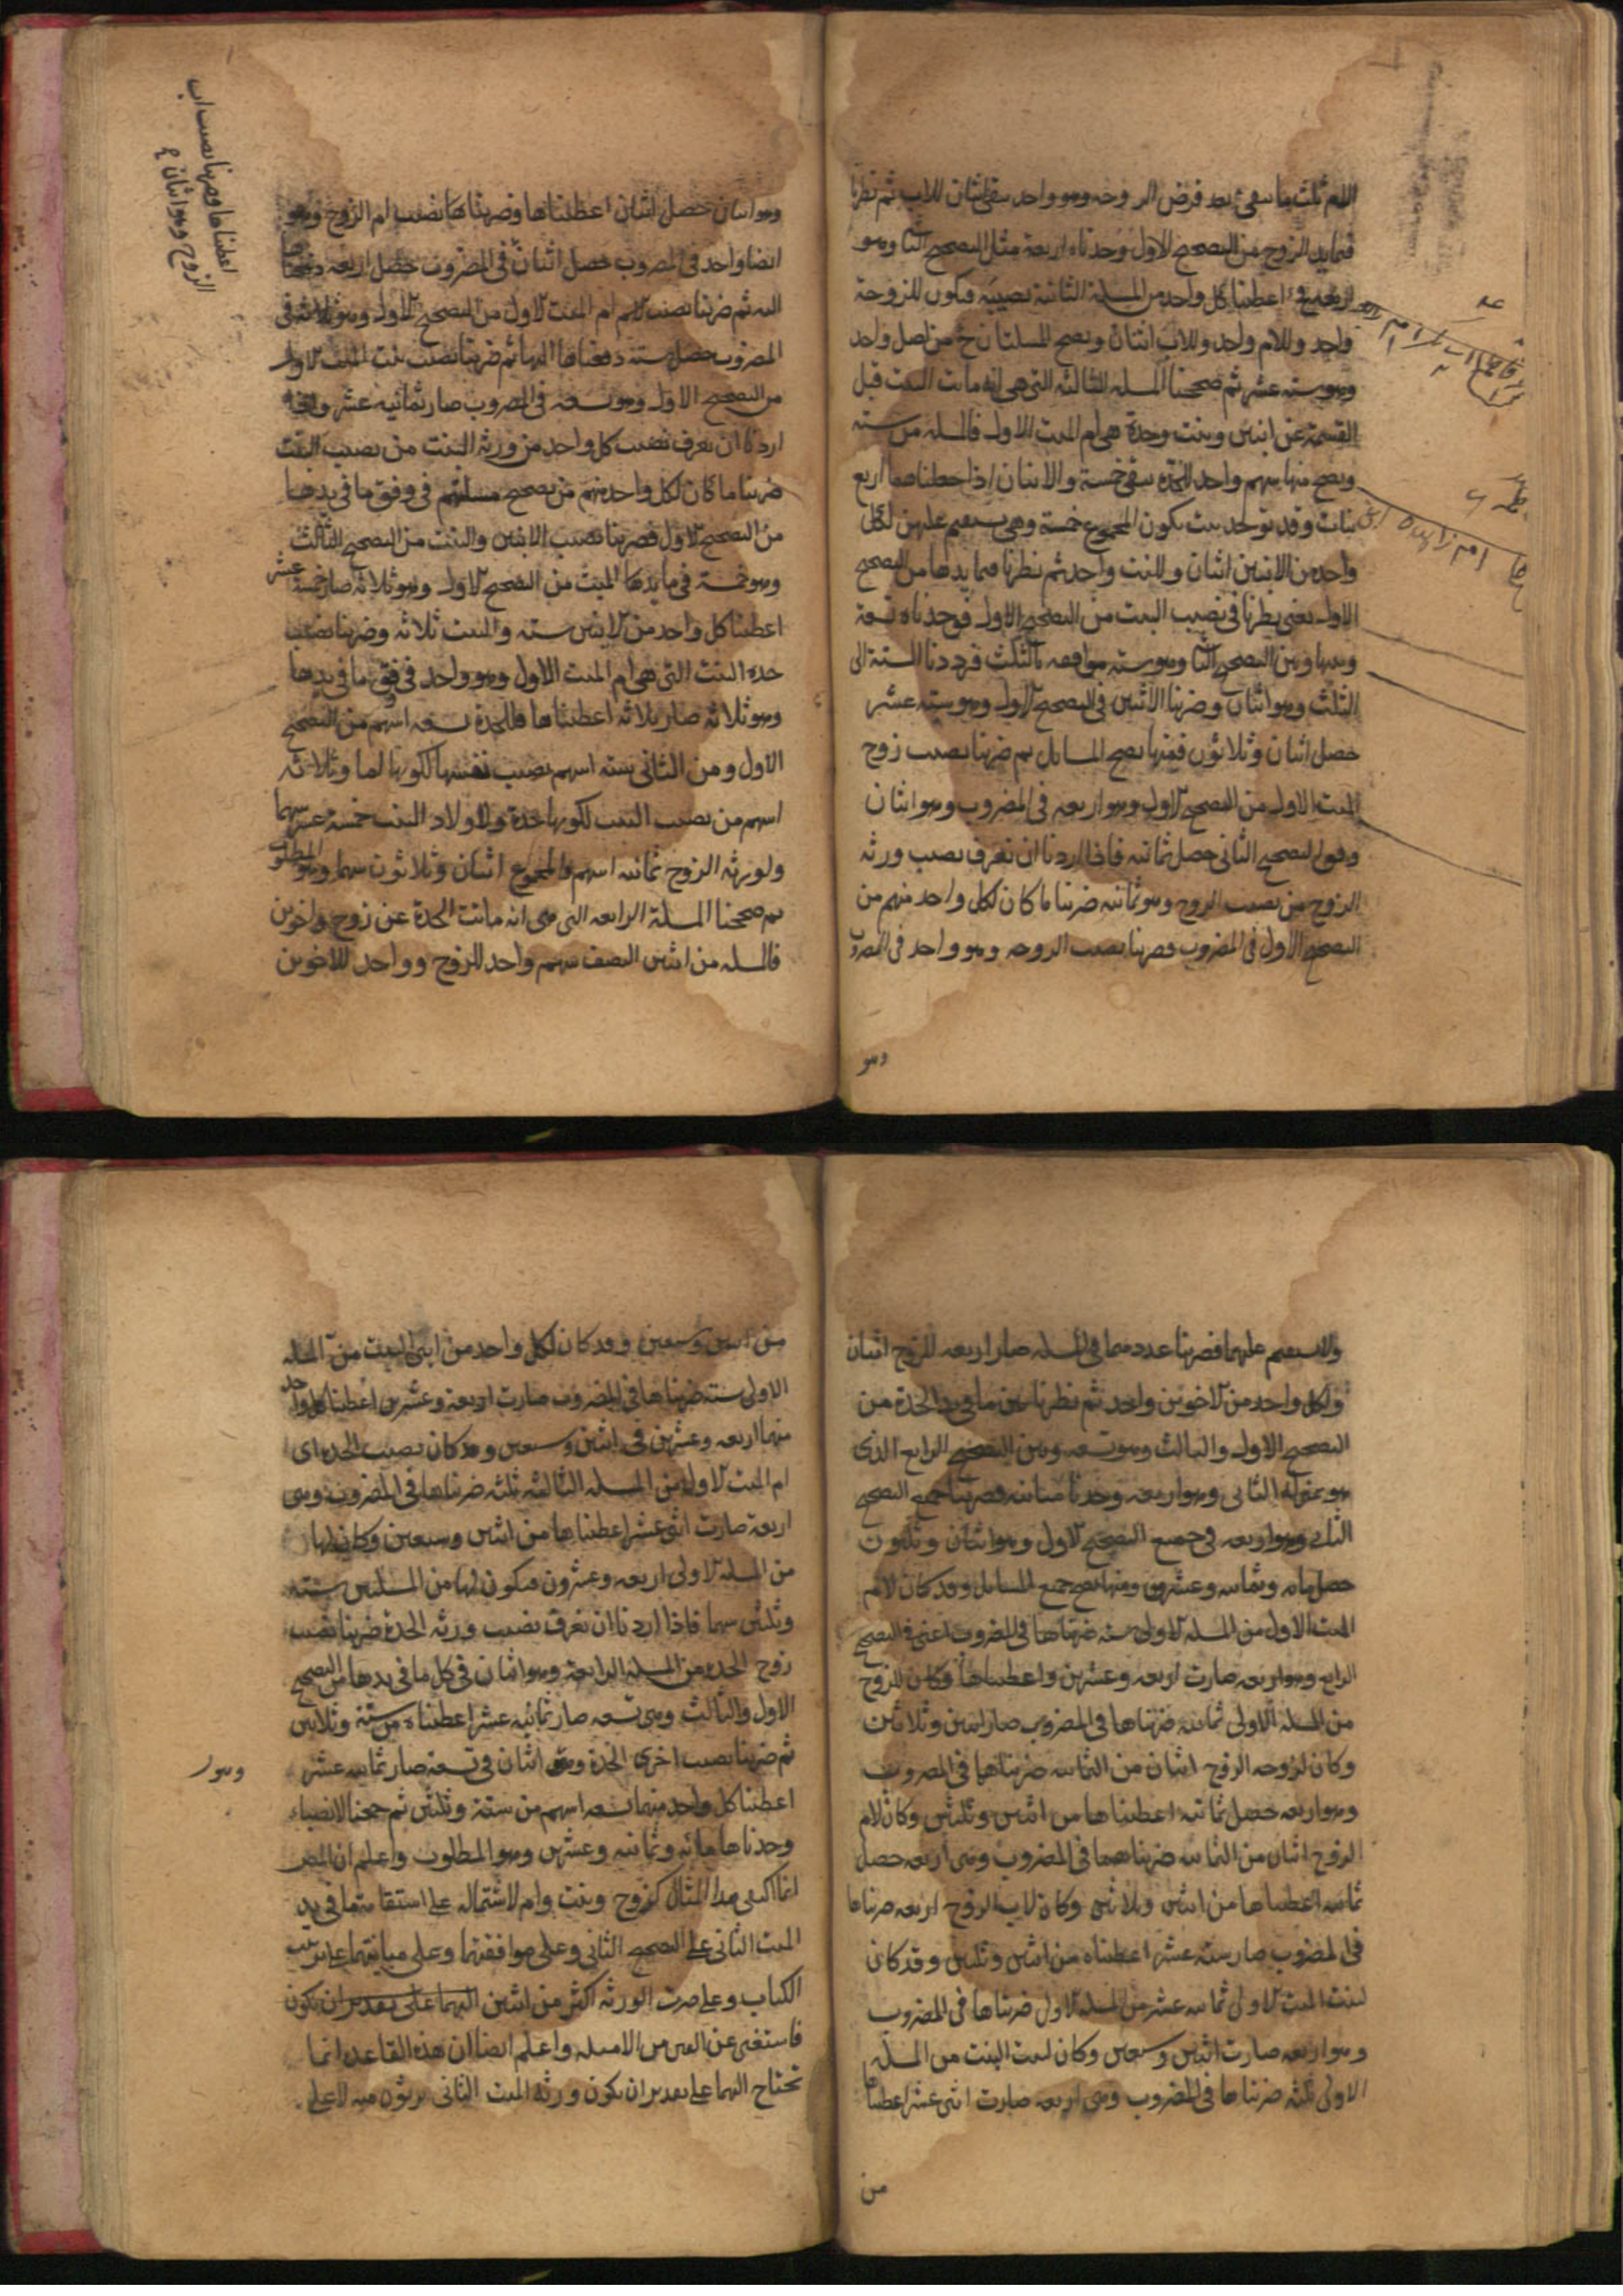 للام ثلث ما يبقى بعد فرض الزوجة وهو واحد بقى اثنان للاب ثم نظرنا
فيما بيد الزوج من التصحيح الاول وجدناه اربعة مثل التصحيح الثا وهو
اربعة اعطينا كل واحد من المسلة الثانية نصيبه فيكون للزوجة
واحد وللام واحد وللاب اثنان وتصح المسلتان ح من اصل واحد
وهو ستة عشر ثم صححنا المسله الثالثة التى هى انه ماتت البنت قبل
القسمة عن ابنين وبنت وجدة هى ام الميت الاول فالمسله من ستة
وتصح منها سهم واحد للجدة بقى خمسة والابنان اذا جعلناهما اربع
بنات وقد توجد بنت يكون المجموع خمسة وهى يستقيم عليهن لكل
واحد من الابنين اثنان وللبنت واحد ثم نظرنا فيما يدها من التصحيح
الاول يعنى نظرنا فى نصيب البنت من التصحيح الاول فوجدناه تسعة
وبينها وبين التصحيح الثا وهو ستة موافقه بالثلث فرددنا الستة الى
الثلث وهو اثنان وضربنا الاثنين فى التصحيح الاول وهو ستة عشر
حصل اثنان وثلاثون فمنها تصح المسائل ثم ضربنا نصيب زوج
الميت الاول من التصحيح الاول وهو اربعه فى المضروب وهو اثنان
وفق التصحيح الثانى حصل ثمانيه فاذا اردنا ان نعرف نصيب ورثة
الزوج من نصيب الزوج وهو ثمانيه ضربنا ما كان لكل واحد منهم من
التصحيح الاول فى المضروب فضربنا نصيب الزوجه وهو واحد فى المضروب
وهو
وهو اثنان حصل اثنان اعطيناها وضربناها نصيب ام الزوج وهو
ايضا واحد فى المضروب حصل اثنان فى المضروب حصل اربعه دفعناها
اليه ثم ضربنا نصيب الام ام الميت الاول من التصحيح الاول وهو ثلاثة فى
المضروب حصل ستة دفعناها اليها ثم ضربنا نصيب بنت الميت الاول
من التصحيح الاول وهو تسعه فى المضروب صار ثمانيه عشر واذا
اردنا ان نعرف نصيب كل واحد من ورثة البنت من نصيب البنت
ضربنا ما كان لكل واحد منهم من تصحيح مسلتهم فى وفق ما فى يدها
من التصحيح الاول فضربنا نصيب الابنين والبنت من التصحيح الثالث
وهو خمسة فى ما يدها الميت من التصحيح الاول وهو ثلاثة صار خمسة عشر
اعطينا كل واحد من الابنين ستة والبنت ثلاثه وضربنا نصيب
جدة البنت التى هى ام الميت الاول وهو واحد فى وفق ما فى يدها
وهو ثلاثة صار ثلاثة اعطيناها فللجدة تسعه اسهم من التصحيح
الاول ومن الثانى ستة اسهم نصيب نفسها لكونها اما وثلاثه
اسهم من نصيب البنت لكونها جدة ولاولاد البنت خمسة عشر سهما
ولورثة الزوج ثمانيه اسهم فالمجموع اثنان وثلاثون سهما وهو المطلوب
ثم صححنا المسلة الرابعه التى هى انه ماتت الجدة عن زوج واخوين
فالمسله من اثنين النصف سهم واحد للزوج وواحد للاخوين
اعطيناها وضربنا نصيب اب
الزوج وهو اثنان
ولا يستقيم عليهما فضربنا عددهما فى المسلة صار اربعه للزوج اثنان
ولكل واحد من الاخوين واحد ثم نظرنا بين ما فى يد الجدة من
التصحيح الاول والثالث وهو تسعه وبين التصحيح الرابع الذى
هو بمنزلة الثانى وهو اربعه وجدنا مباينه فضربنا جميع التصحيح
الثانى وهو اربعه فى جميع التصحيح الاول وهو اثنان وثلثون
حصل مائة وثمانيه وعشرون ومنها تصح جميع المسائل وقد كان لام
الميت الاول من المسلة الاولى ستة ضربناها فى المضروب اعنى فى التصحيح
الرابع وهو اربعه صارت اربعه وعشرين واعطيناها وكان للزوج
من المسلة الاولى ثمانيه ضربناها فى المضروب صار اثنين وثلاثين
وكان لزوجه الزوج اثنان من الثمانيه ضربناهما فى المضروب
وهو اربعه حصل ثمانيه اعطيناها من اثنين وثلثين وكان لام
الزوج اثنان من الثمانيه ضربناهما فى المضروب وهى اربعه حصل
ثمانيه اعطيناها من اثنين وثلاثين وكان لاب الزوج اربعه ضربناها
فى المضروب صار ستة عشر اعطيناه من اثنين وثلثين وقد كان
لبنت الميت الاولى ثمانيه عشر من المسلة الاول ضربناها فى المضروب
وهو اربعه صارت اثنين وسبعين وكان لبنت البنت من المسلة
الاولى ثلثة ضربناها فى المضروب وهى اربعه صارت اثنى عشر اعطيناها
من
من اثنين وسبعين وقد كان لكل واحد من ابنى البنت من المسلة
الاولى ستة ضربناها فى المضروب صارت اربعة وعشرين اعطينا كل واحد
منهما اربعه وعشرين فى اثنين وسبعين وقد كان نصيب الجده اى
ام الميت الاول من المسله الثالثه ثلثه ضربناها فى المضروب وهى
اربعة صارت اثنى عشر اعطيناها من اثنين وسبعين وكان لها
من المسلة الاولى اربعه وعشرون فيكون لها من المسلتين ستة
وثلثين سهما فاذا اردنا ان نعرف نصيب ورثه الجدة ضربنا نصيب
زوج الجده من المسلة الرابعة وهو اثنان فى كل ما فى يدها من التصحيح
الاول والثالث وهى تسعه صار ثمانيه عشر اعطيناه من ستة وثلاثين
ثم ضربنا نصيب اخوى الجدة وهو اثنان فى تسعة صار ثمانيه عشر
اعطينا كل واحد منهما تسعه اسهم من ستة وثلثين ثم جمعنا الانصباء
وجدناها مائه وثمانيه وعشرين وهو المطلوب واعلم ان المص
انما اكتفى بهذا المثال كزوج وبنت وام لاشتماله على استقامة ما فى يد
الميت الثانى على التصحيح الثانى وعلى موافقتهما وعلى مباينتهما على ترتيب
الكتاب وعلى صرت الورثه اكثر من اثنين
فاستغنى عن الامثلة واعلم ايضا ان هذه القاعده انما
تحتاج اليها على تقدير ان يكون ورثة الميت الثانى يرثون منه لا على